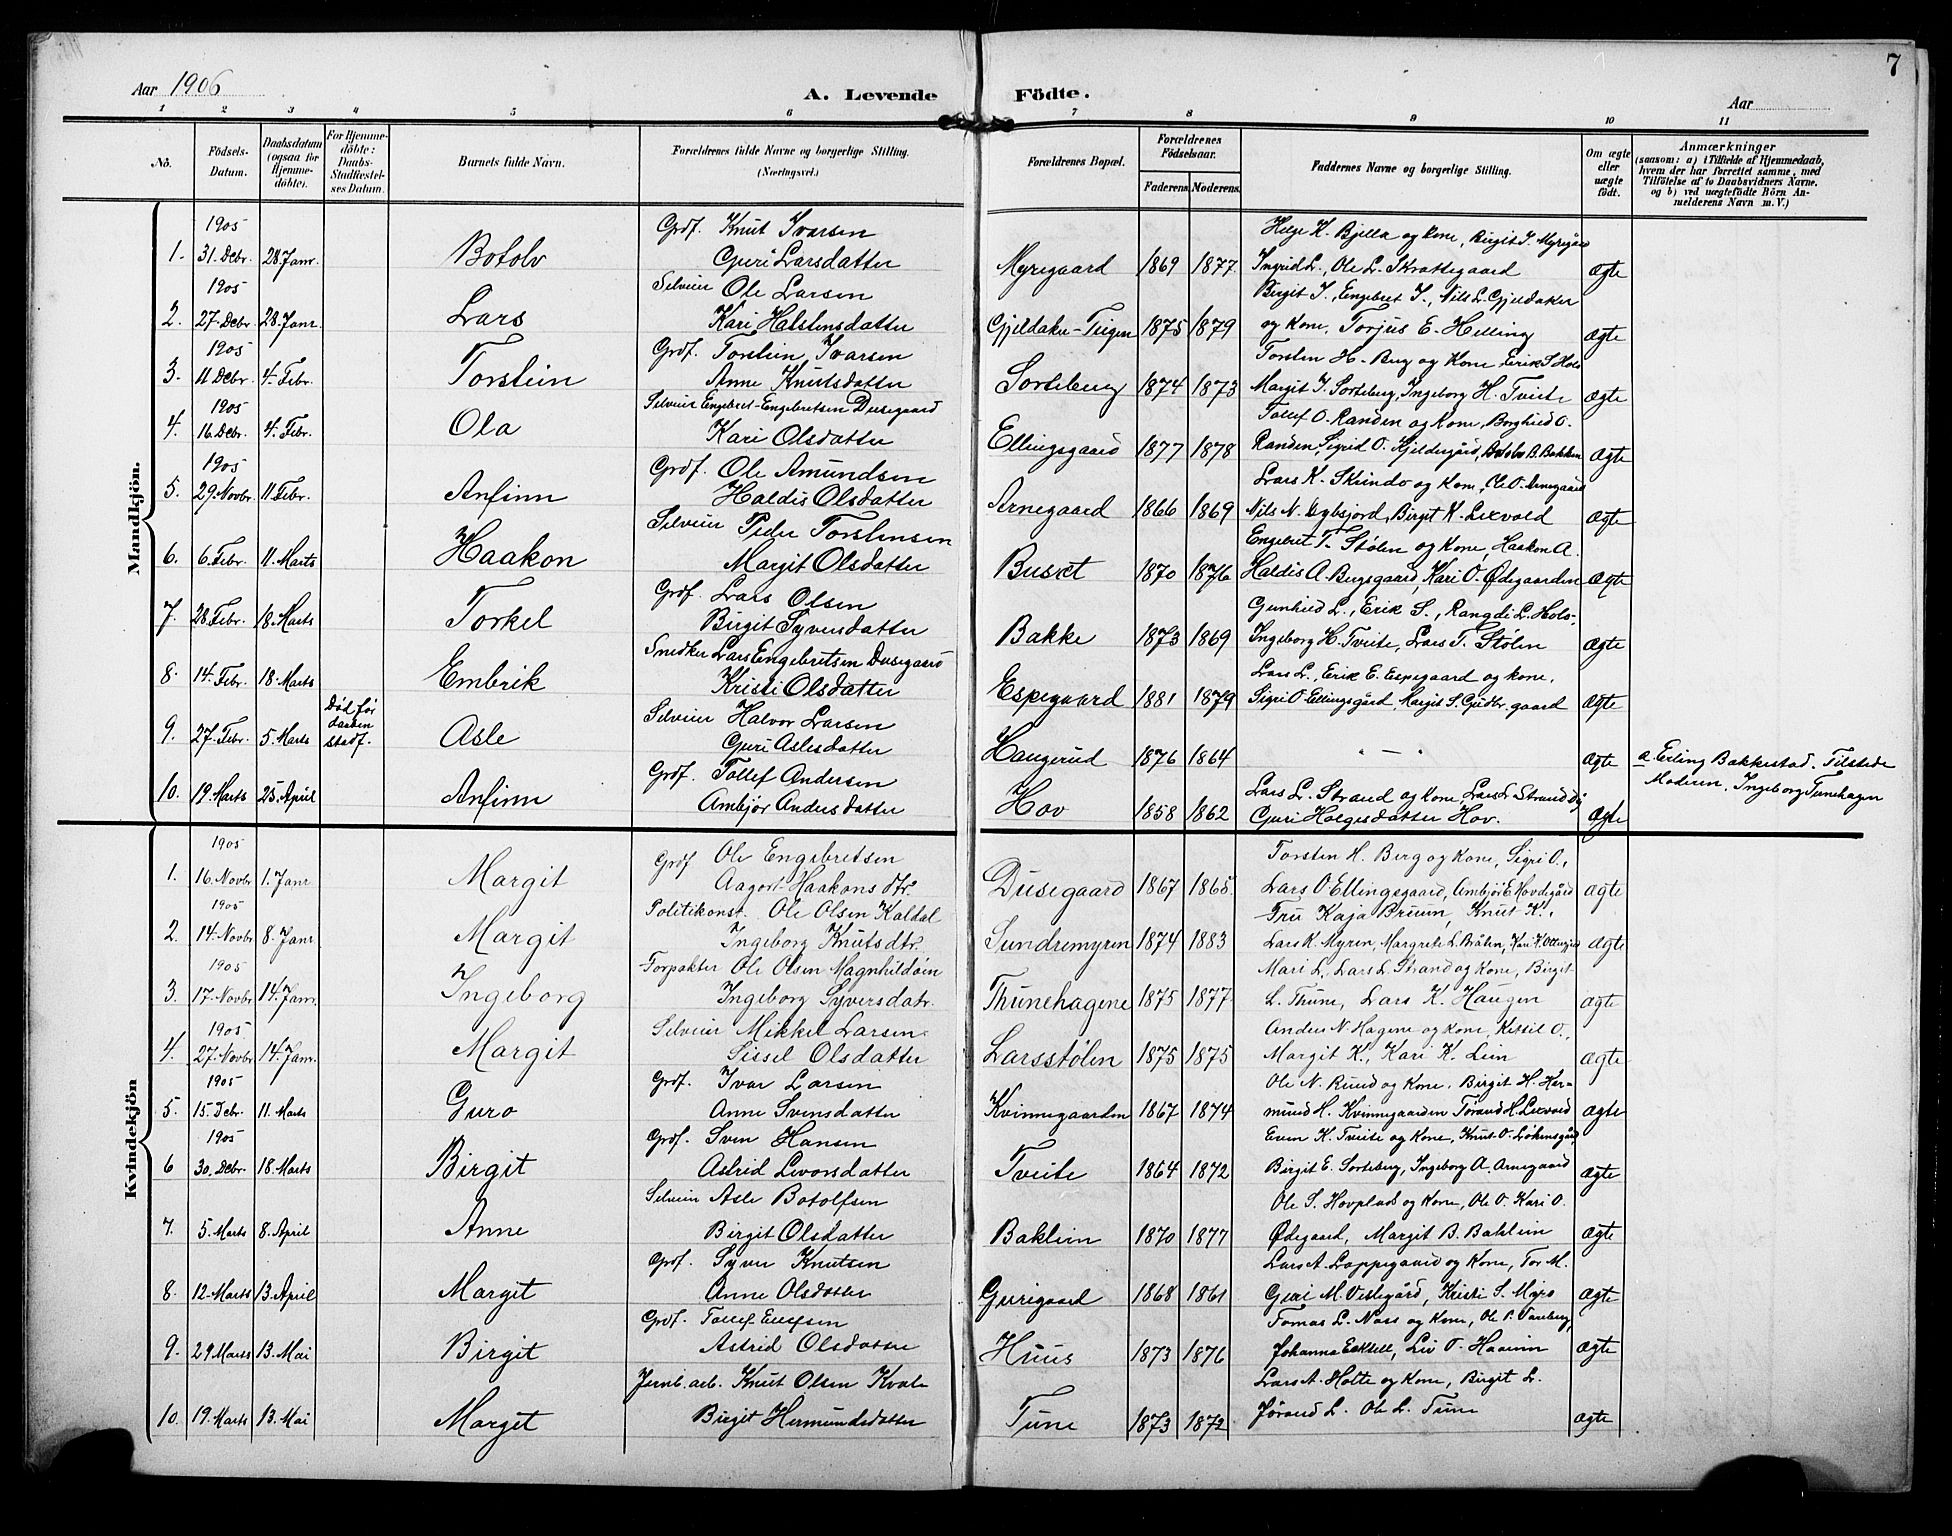 7
Aar 1906
A. Levende Födte.
Aar
1 2 3 4 5 6 7 8 9 10 11
No.
Födsels-Datum.
Daabsdatum (ogsaa for Hjemme-döbte).
For Hjemme-döbte: Daabs-Stadfæstel-ses Datum.
Barnets fulde Navn.
Forældrenes fulde Navne og borgerlige Stilling. (Næringsvei.)
Forældrenes Bopæl.
Forældrenes Födselsaar.
Faderens. Moderens.
Faddernes Navne og borgerlige Stilling.
Om ægte eller uægte födt.
Anmærkninger
(saasom: a) i Tilfælde af Hjemmedaab, hvem der har forrettet samme, med Tilföielse af to Daabsvidners Navne, og b) ved uægtefödte Börn An-melderens Navn m. V.)
Mandkjön.
1905 Grdf. Knut Ivarsen Helge K. Bjella og Kone, Birgit I. Myregaard
1. 31. Debr. 28. Janr. Botolv Guri Larsdatter Myregaard 1869 1877 Ingrid L., Ole L. Skrattegaard ægte
1905 Selveier Ole Larsen Birgit I., Engebret I., Nils L. Gjeldaker
2. 27. Debr. 28. Janr. Lars Kari Halstensdatter Gjeldaker-Teigen 1875 1879 og Kone, Torjus E. Helling ægte
1905 Grdf. Torstein Ivarsen Torsten H. Berg og Kone, Erik S. Hols
3. 11 Debr. 4. Febr. Torstein Anne Knutsdatter Sorteberg 1874 1873 Margit I. Sorteberg, Ingeborg H. Tveite ægte
1905 Selveier Engebret Engebretsen Dusegaard Tollef O. Randen og Kone, Borghild O.
4. 16. Debr. 4. Febr. Ola Kari Olsdatter Ellingsgaard 1877 1878 Randen, Sigrid O. Kjeldergård, Botolv B. Bakken ægte
1905 Grdf. Ole Amundsen Lars K. Skrindo og Kone, Ole O. Arnegaard
5. 29. Novbr. 11. Febr. Anfinn Haldis Olsdatter Arnegaard 1866 1869 Nils N. Nybsjord, Birgit K. Lexvold ægte
Selveier Peder Torstensen Engebret T. Stölen og Kone, Haakon A.
6. 6. Febr. 11. Marts Haakon Margit Olsdatter Busvet 1870 1876 Haldis A. Bergsgaard, Kari O. Ødegaarden ægte
Grdf. Lars Olsen Gunhild L., Erik S., Rangdi L. Hols-
7. 28. Febr. 18. Marts Torkel Birgit Syversdatter Bakke 1873 1869 Ingeborg H. Tveite, Lars T. Stölen ægte
Snedker Lars Engebretsen Dusegaard Lars L., Erik E. Espegaard og Kone,
8. 14. Febr. 18. Marts Embrik Kristi Olsdatter Espegaard 1881 1879 Sigri O. Ellingsgård, Margit S. Gudbr.gaard ægte
Død før daaben stadf.
Selveier Halvor Larsen
9. 27. Febr. 5. Marts Asle Guri Aslesdatter Haugerud 1876 1864 " — " ægte a. Erling Bakkestad. Tilstede
Moderen, Ingeborg Tunehagen
Grdf. Tollef Andersen Lars L. Strand og Kone, Lars L. Strand
10. 19. Marts 25. April Anfinn Ambjør Andersdatter Hov 1858 1862 Guri Helgesdatter Hov. ægte
Kvindekjön
1905 Grdf Ole Engebretsen Torsten H. Berg og Kone, Sigri O.,
1. 16. Novbr. 1. Janr Margit Aagot Haakonsdtr. Dusegaard 1867 1865 Lars O. Ellingsgaard, Ambjør E. Hovdegård ægte
1905 Politikonst. Ole Olsen Kaldal Fru Kaja Bruun, Knut K.,
2. 14. Novbr 8. Janr Margit Ingeborg Knutsdtr. Sundremyren 1874 1883 Lars K. Myren, Margrete L. Bråten, Kari K. ægte
1905 Forpakter Ole Olsen Magnhildöin Mari L., Lars L. Strand og Kone, Birgit
3. 17. Novbr 14. Janr. Ingeborg Ingeborg Syversdatr. Thunehagene 1875 1877 L. Thune, Lars K. Haugen ægte
1905 Selveier Mikkel Larsen Anders N. Hagene og Kone, Ketsil O.,
4. 27. Novbr 14. Janr. Margit Sissel Olsdatter Larsstölen 1875 1875 Margit K., Kari K. Lein ægte
1905 Grdf. Ivar Larsen Ole N. Ruud og Kone, Birgit H. Her-
5. 15. Debr. 11. Marts Guro Anne Svensdatter Kvinnegaarden 1867 1874 mund H. Kvinnegaarden Tørand H. Lexvold ægte
1905 Grdf. Sven Hansen Even K. Tveite og Kone, Knut O. Løkensgård
6 30. Debr. 18. Marts Birgit Astrid Levorsdatter Tveite 1864 1872 Birgit E. Sorteberg, Ingeborg A. Arnegaard ægte
Selveier Asle Botolfsen Ole S. Hovplads og Kone, Ole O. Kari O.
7. 5. Marts 8. April Anne Birgit Olsdatter Baklien 1870 1877 Ødegaard, Margit B. Baklien ægte
Grdf. Syver Knutsen Lars A. Loppegaard og Kone, Tor M.
8. 12. Marts 13. April Margit Anne Olsdatter Gurigaard 1868 1861 Guri M. Vestegård, Kristi S. Myro ægte
Grdf. Tollef Ellefsen Tomas L. Næss og Kone, Ole P. Tansberg,
9. 29. Marts 13. Mai Birgit Astrid Olsdatter Huus 1873 1876 Johanna Eskeli, Liv O. Haarim ægte
Jernb. arb. Knut Olsen Kvale Lars A. Holte og Kone, Birgit L.
10. 19. Marts 13. Mai Margit Birgit Hermundsdatter Tune 1873 1872 Jørand L. Ole L. Tune ægte